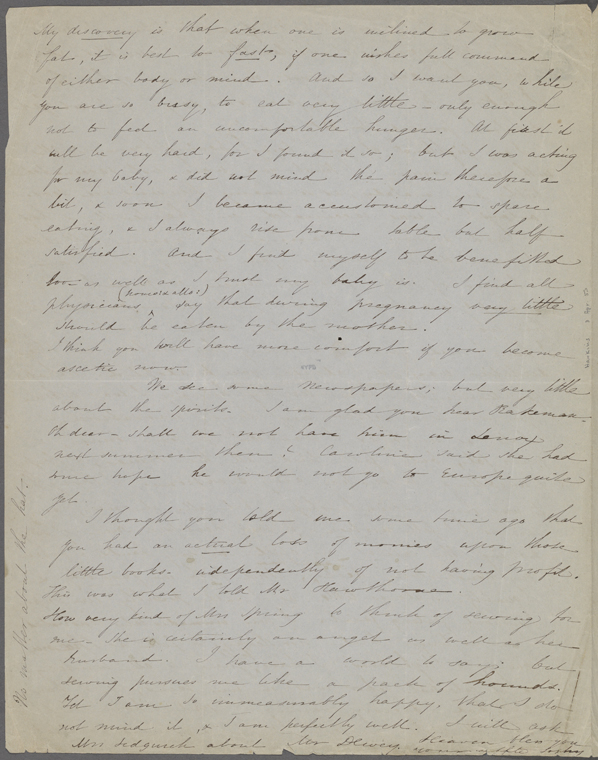 My discovery is that when one is inclined to grow
fat, it is best to fast, if one wishes full command
of either body or mind. And so I want you, while
you are so busy, to eat very little - only enough
not to feel an uncomfortable hunger. At first it
will be very hard, for I found it so; but I was acting
for my baby, & did not mind the pain therefore a
bit, & soon I became accustomed to spare
eating, & I always rise from table but half
satisfied. And I find myself to be benefitted
too as well as I trust my baby is. I find all
physicians (homeix alls?) say that during pregnancy very little
should be eaten by the mother.
I think you will have more comfort if you become
ascetic now.
We see some newspapers; but very little
about the spirits. I am glad you hear
Oh dear - shall we not have him in Lenox
next summer then? Caroline said she had
some hope he would not go to Europe quite
yet.
I thought you told me some time ago that
you had an actual loss of monies upon those
little books - independently of not having profit.
This was what I told Mr Hawthorne.
How very kind of Mrs Spring to think of sewing for
me. She is certainly an angel as well as her
husband. I have a world to say; but
sewing pursues me like a pack of hounds.
Yet I am so immeasurably happy, that I do
not mind it, & I am perfectly well. I will ask
Mrs Sedgwick about Mr Dewey. Heaven bless you
No matter about the hat.